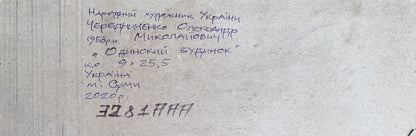 Народний художник України
Чередниченко Олександр
1958р.н. Миколайович
„Одинокий будинок"
к.о. 9×25,5
Україна
м. Суми
2020р
3281ААА